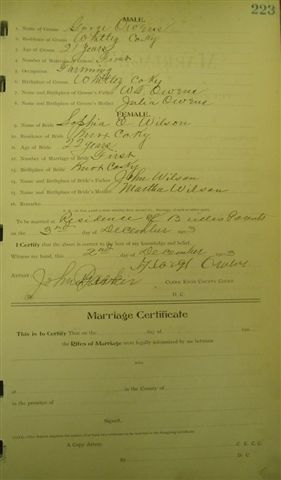 223
MALE.
1. Name of Groom Owens
2. Residence of Groom Whitley Co Ky
3. Age of Groom 21 years
4. Number of Marriage of Groom First
5. Occupation Farming
6. Birthplace of Groom Whitley Co Ky
7. Name and Birthplace of Groom's Father Owens
8. Name and Birthplace of Groom's Mother Julia Owens
FEMALE.
9. Name of Bride Sophia Wilson
10. Residence of Bride Knox Co Ky
11. Age of Bride 22 years
12. Number of Marriage of Bride First
13. Birthplace of Bride Knox Co Ky
14. Name and Birthplace of Bride's Father John Wilson
15. Name and Birthplace of Bride's Mother Martha Wilson
16. Remarks
To be married at Residence of Brides Parents
on the 3rd day of December 3
I Certify that the above is correct to the best of my knowledge and belief.
Witness my hand, this 2nd day of December 3
Attest: John Parker
Clerk Knox County Court
D. C.
Marriage Certificate
This is to Certify That on the day of
the Rites of Marriage were legally solemnized by me between
and
at in the County of
in the presence of
Signed,
A Copy Attest: C. K. C. C.
By D. C.